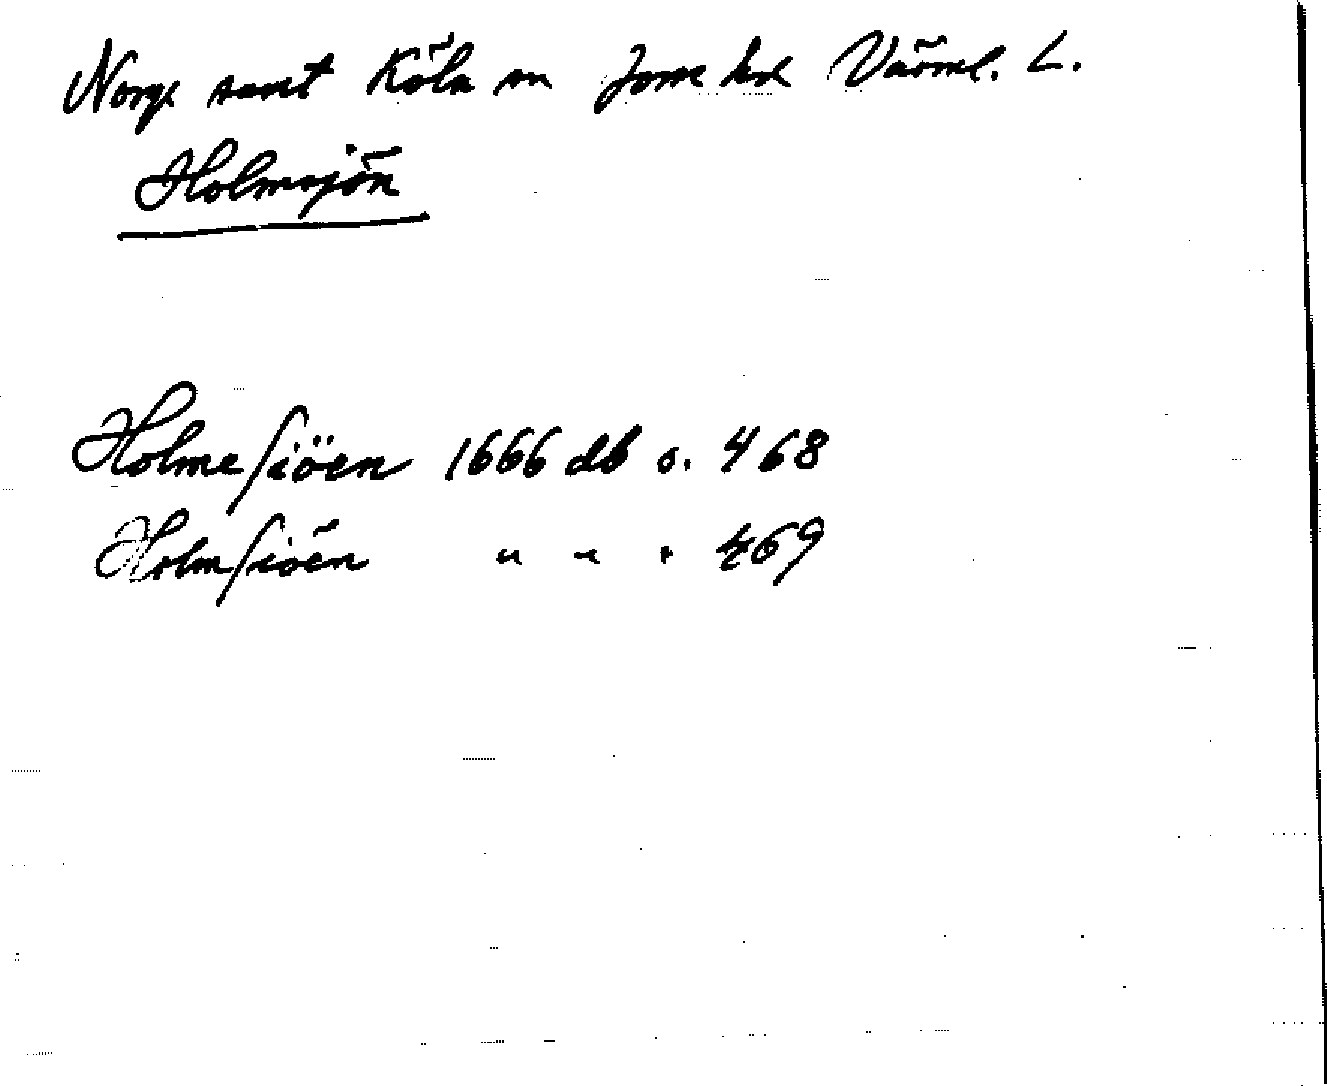 Norge samt Köla sn Jösse hd Värml. L.
Holmsjön
Holmesiöen 1666 db s. 468
Holmsiöen " " " 469